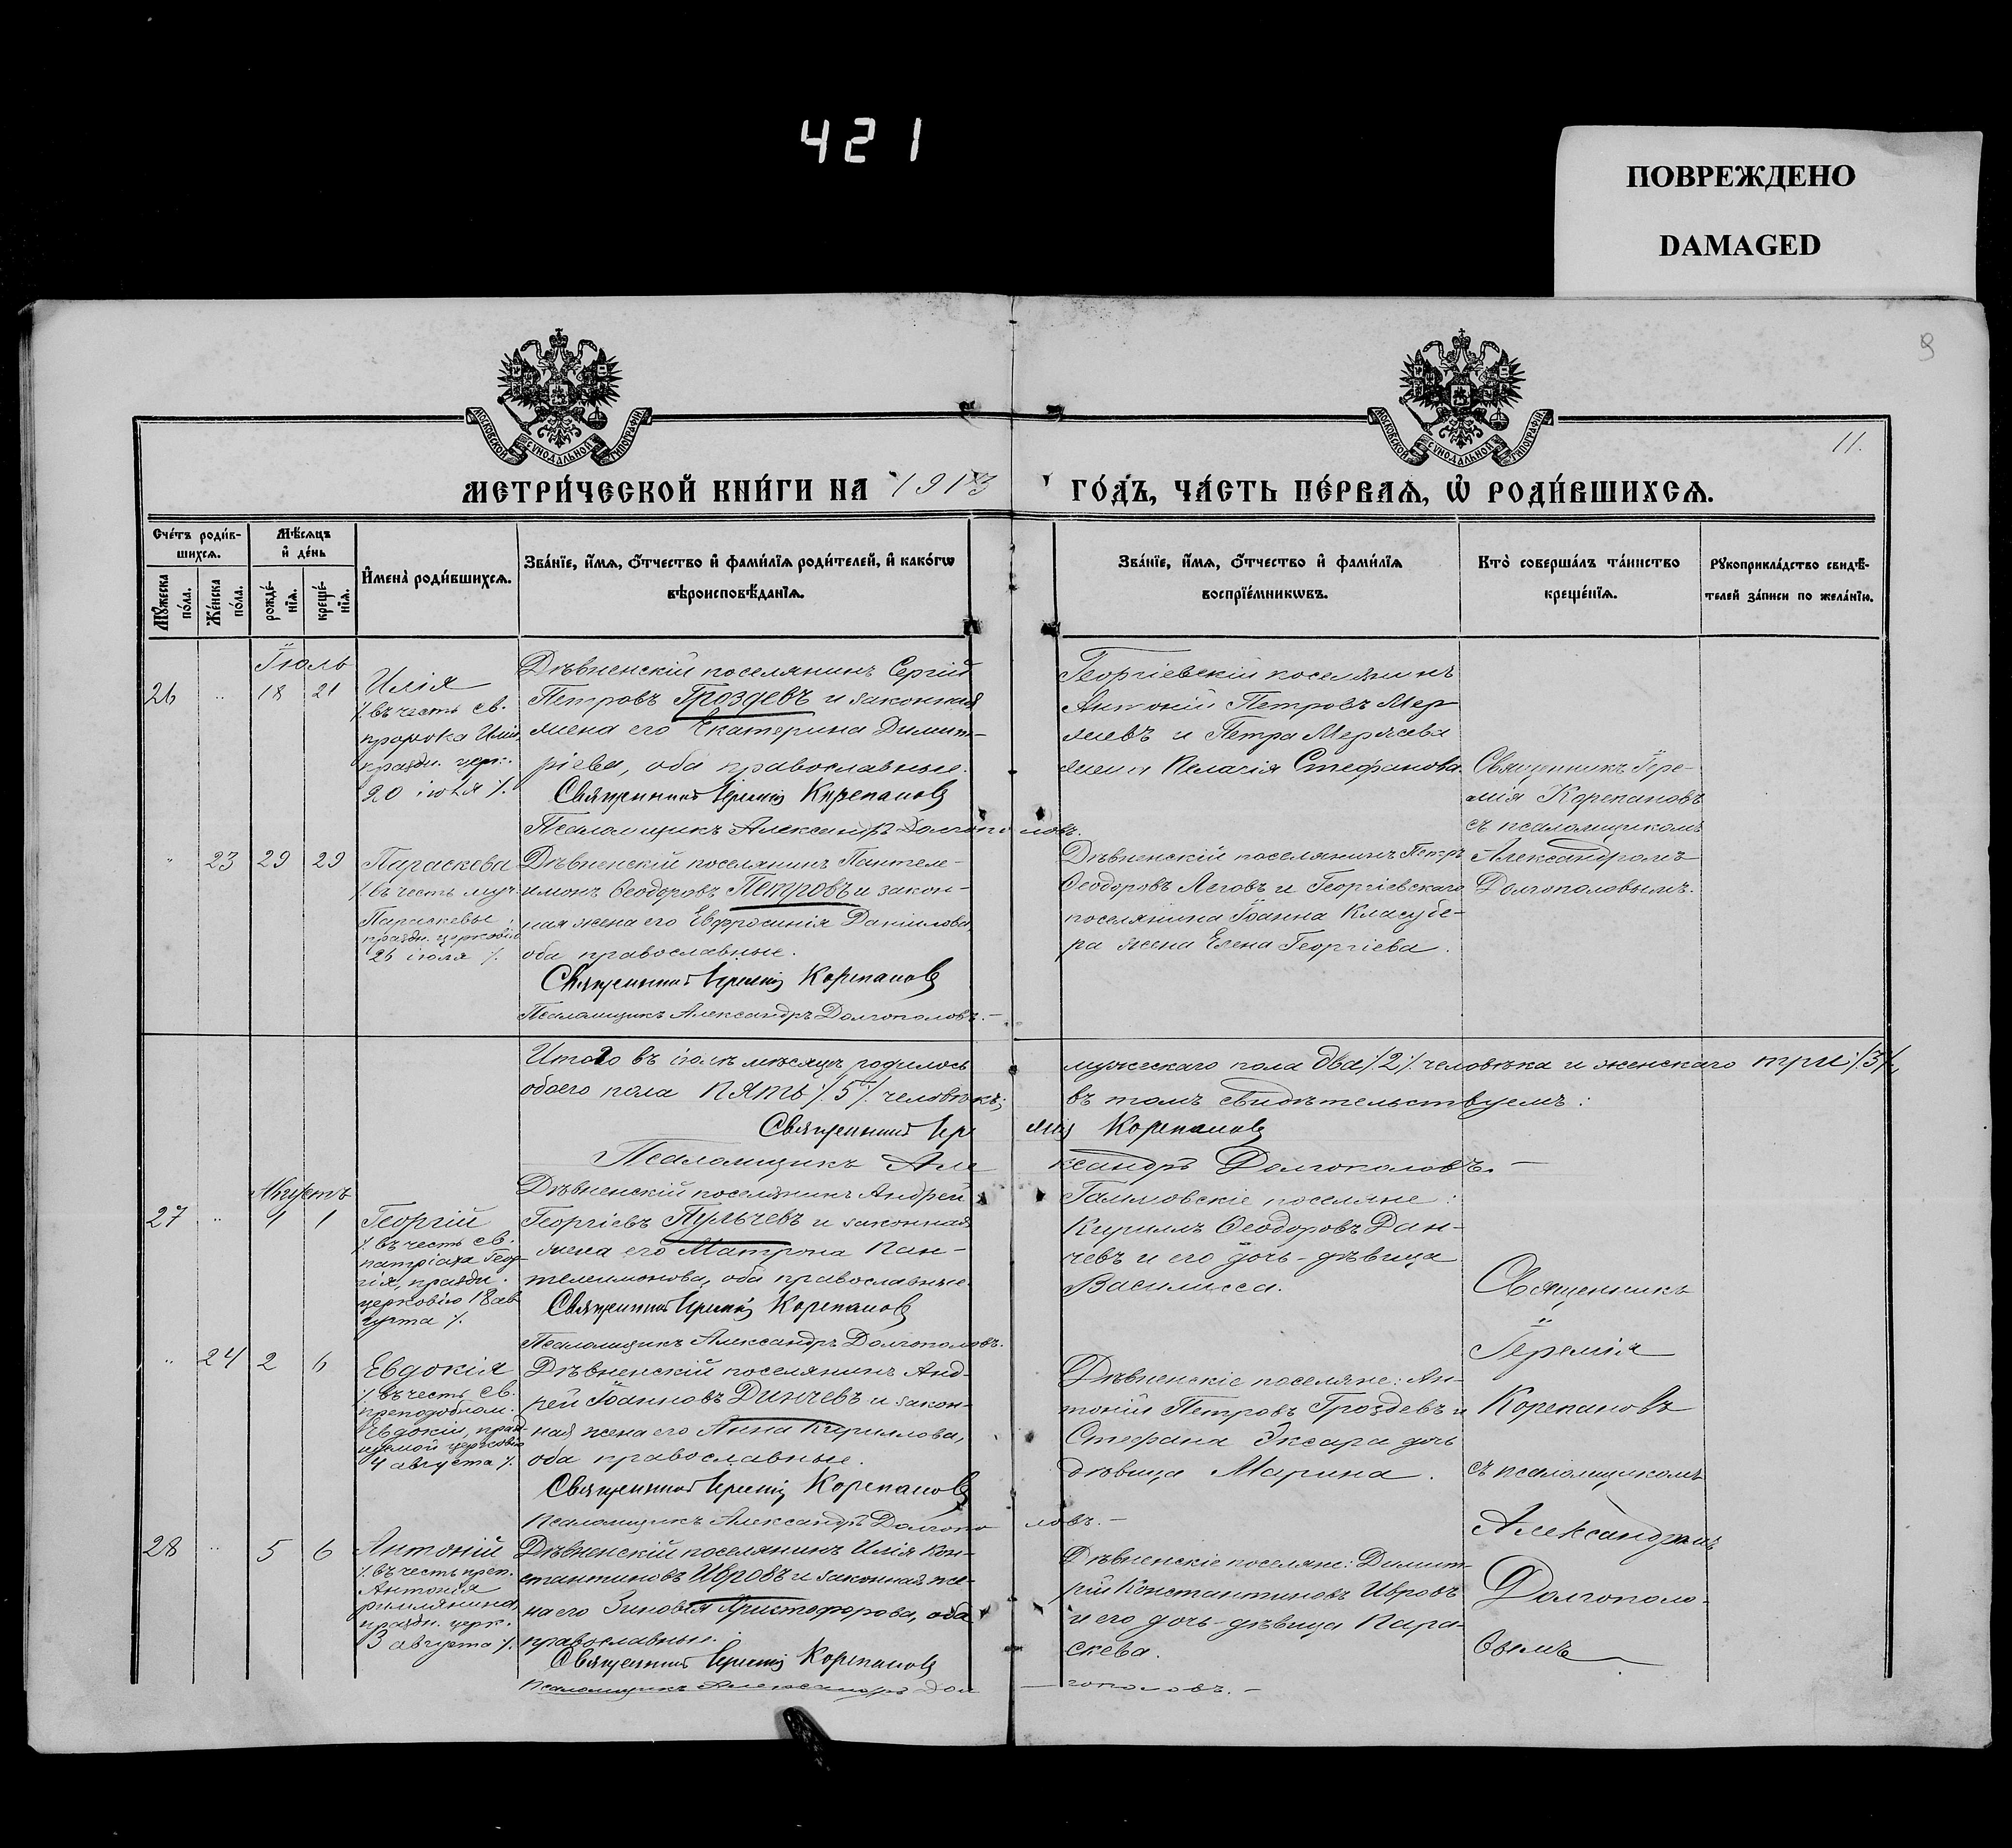 421
ПОВРЕЖДЕНО
DAMAGED
9
11.
МОСКОВСКОЙ СУНОДАЛЬНОЙ ТИПОГРАФІИ
МОСКОВСКОЙ СУНОДАЛЬНОЙ ТИПОГРАФІИ
МЕТРИ́ЧЕСКОЙ КНИ́ГИ НА 1913 ГО́ДЪ, ЧА́СТЬ ПЕ́РВАѦ, Ѡ҆ РОДИ́ВШИХСѦ.
Сче́тъ роди́в-
шихсѧ.
Мѣ́сѧцъ
и҆ де́нь
Мꙋ́жеска
по́ла.
Же́нска
по́ла.
рожде́-
нїѧ.
креще́-
нїѧ.
И҆мена̀ роди́вшихсѧ.
Зва́нїе, и҆́мѧ, ѻ҆́тчество и҆ фами́лїѧ роди́телей, и҆ како́гѡ
вѣроисповѣ́данїѧ.
Зва́нїе, и҆́мѧ, ѻ҆́тчество и҆ фами́лїѧ
воспрїе́мникѡвъ.
Кто̀ соверша́лъ та́инство
креще́нїѧ.
Рꙋкоприкла́дство свидѣ́-
телей за́писи по жела́нїю.
Іюль
26 „ 18 21
Илія
/. въ честь св.
пророка Иліи,
праздн. церк.
20 іюля /.
Дѣвненскій поселянинъ Сергій
Петровъ Гроздевъ и законная
жена его Екатерина Димит-
ріева, оба православные.
Священникъ Іеремія Корепановъ
Псаломщикъ Александръ Долгополовъ.
Георгіевскій поселянинъ
Антоній Петровъ Мер
жевъ и Петра Мержева
жена Пелагія Стефанова.
Священникъ Іере-
мія Корепановъ
съ псаломщикомъ
Александромъ
Долгополовымъ.
„ 23 29 29
Параскева
/. въ честь муч.
Параскевы,
праздн. церковію
26 іюля /.
Дѣвненскій поселянинъ Пантеле-
имонъ Ѳеодоровъ Петровъ и закон-
ная жена его Евфросинія Даніилова,
оба православные.
Священникъ Іеремія Корепановъ
Псаломщикъ Александръ Долгополовъ. —
Дѣвненскій поселянинъ Петръ
Ѳеодоровъ Леговъ и Георгіевскаго
поселянина Іоанна Класубе-
ра жена Елена Георгіева.
Итого въ іюлѣ мѣсяцѣ родилось мужескаго пола два /.2/. человѣка и женскаго три /.3/.,
обоего пола пять /.5/. человѣкъ; въ томъ свидѣтельствуемъ:
Священникъ Іеремія Корепановъ
Псаломщикъ Александръ Долгополовъ. —
Августъ
27 „ 1 1
Георгій
/. въ честь св.
патріарха Геор-
гія, праздн.
церковію 18 ав
густа /.
Дѣвненскій поселянинъ Андрей
Георгіевъ Пульчевъ и законная
жена его Матрона Пан-
телеимонова, оба православные.
Священникъ Іеремія Корепановъ
Псаломщикъ Александръ Долгополовъ.
Галиловскіе поселяне:
Кириллъ Ѳеодоровъ Дан-
чевъ и его дочь-дѣвица
Василисса.
Священникъ
Іеремія
Корепановъ
съ псаломщикомъ
Александромъ
Долгополо-
вымъ
„ 24 2 6
Евдокія
/. въ честь св.
преподобном.
Евдокіи, празд
нуемой церковію
4 августа /.
Дѣвненскій поселянинъ Анд-
рей Іоанновъ Динчевъ и закон-
ная жена его Анна Кириллова,
оба православные.
Священникъ Іеремія Корепановъ
Псаломщикъ Александръ Долгополовъ. —
Дѣвненскіе поселяне: Ан-
тоній Петровъ Гроздевъ и
Стефана Эксара дочь
дѣвица Марина.
28 „ 5 6
Антоній
/. въ честь преп.
Антонія
римлянина,
праздн. церк.
3 августа /.
Дѣвненскій поселянинъ Илія Кон-
стантиновъ Ивровъ и законная же-
на его Зиновія Христофорова, оба
православные.
Священникъ Іеремія Корепановъ
Псаломщикъ Александръ Долгополовъ. —
Дѣвненскіе поселяне: Димит-
рій Константиновъ Ивровъ
и его дочь-дѣвица Пара-
скева.